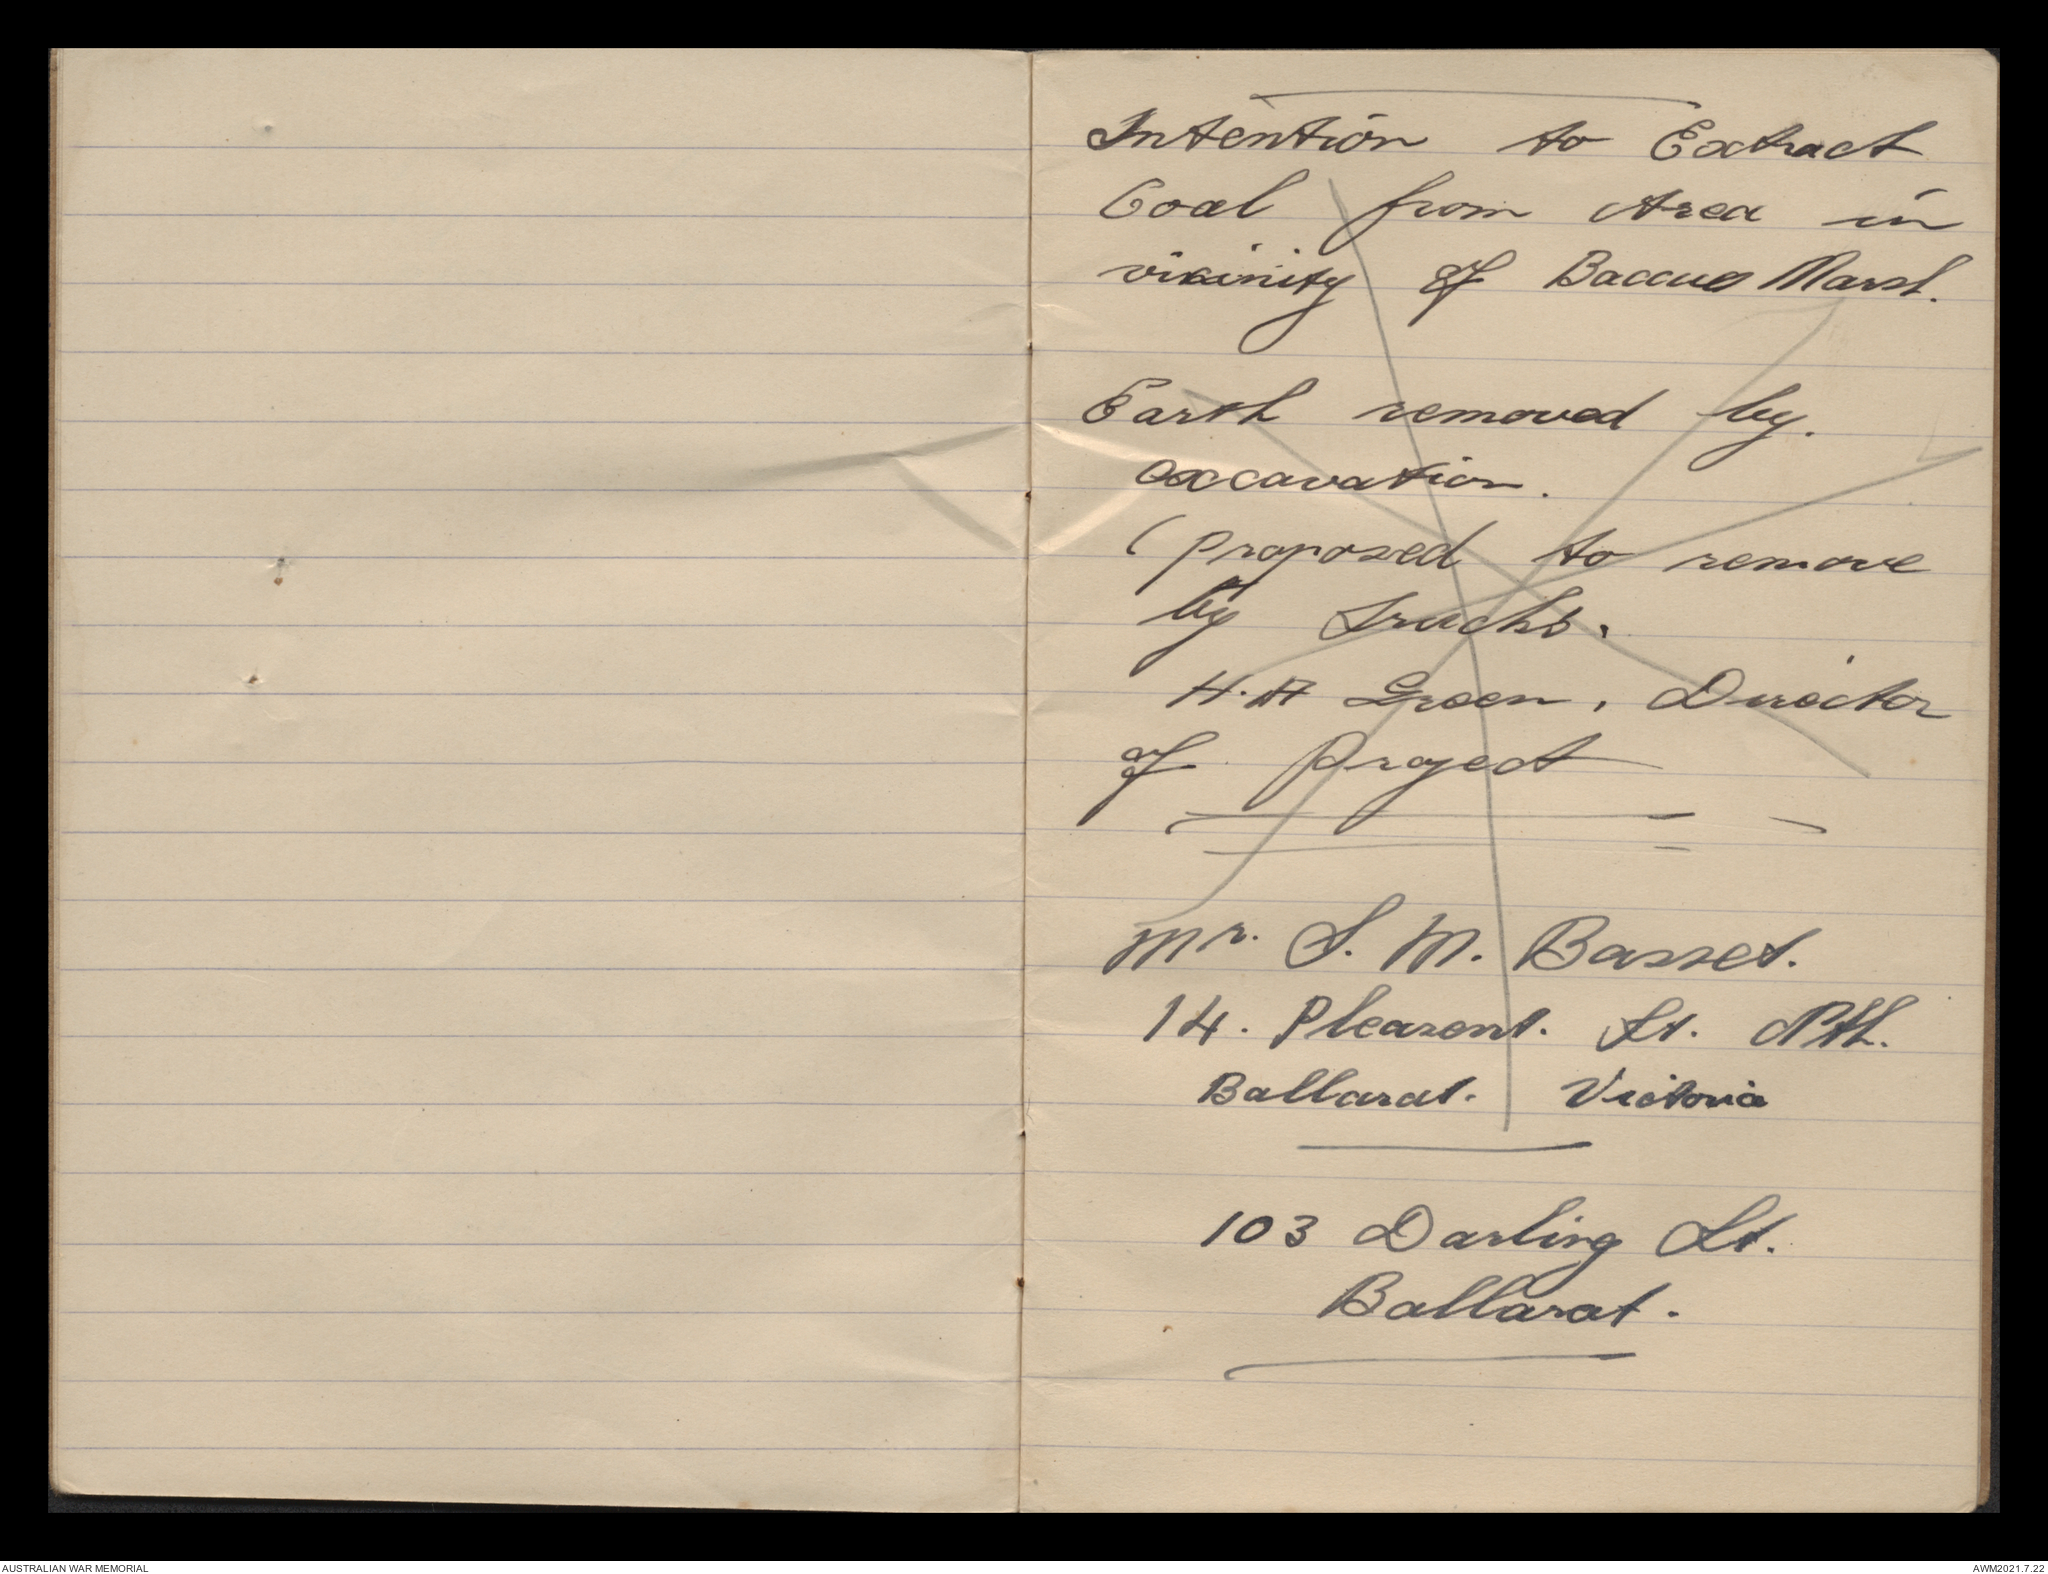 Intention to Extract
Coal from Area in
vicinity of Baccus Marsh.
Earth removed by.
excavation.
( proposed to remove
by trucks.
H. A Green. Director
of Project
Mr. S. M. Basset.
14. Pleasent. St. Nth.
Ballarat. Victoria
103 Darling St.
Ballarat.
AUSTRALIAN WAR MEMORIAL
AWM2021.7.22